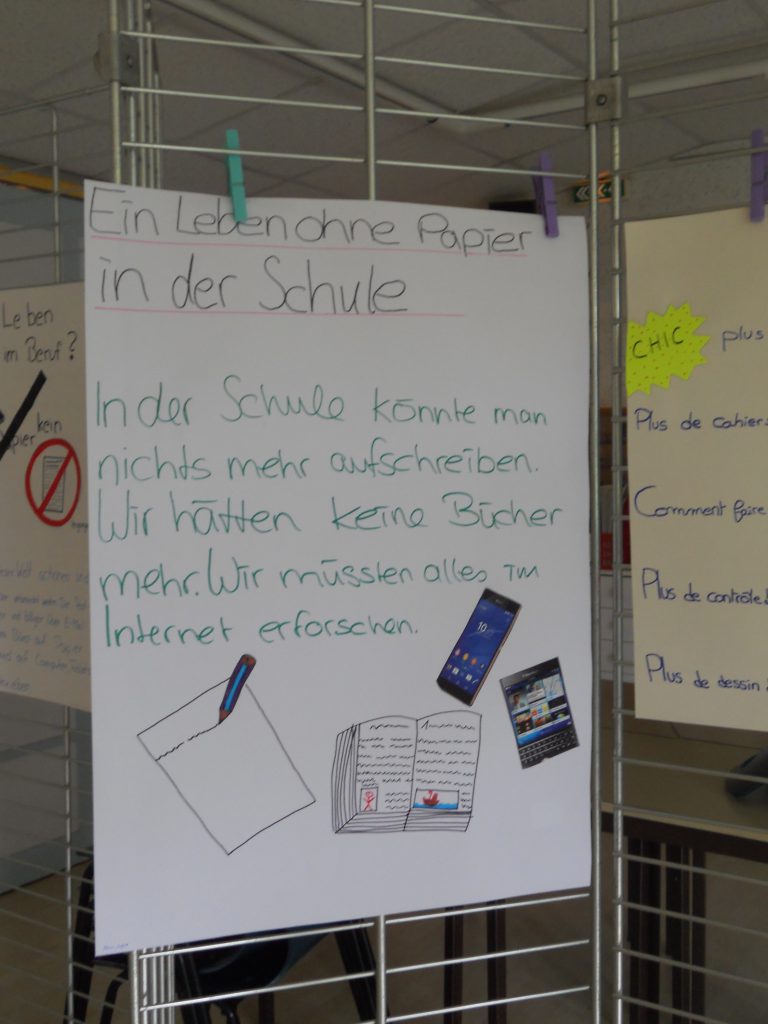 Ein Leben ohne Papier
in der Schule
In der Schule könnte man
nichts mehr aufschreiben.
Wir hätten keine Bücher
mehr. Wir müssten alles im
Internet erforschen.
Leben
im Beruf?
kein
CHIC plus
Plus de cahier
Comment faire
Plus de contrôle
Plus de dessin
10